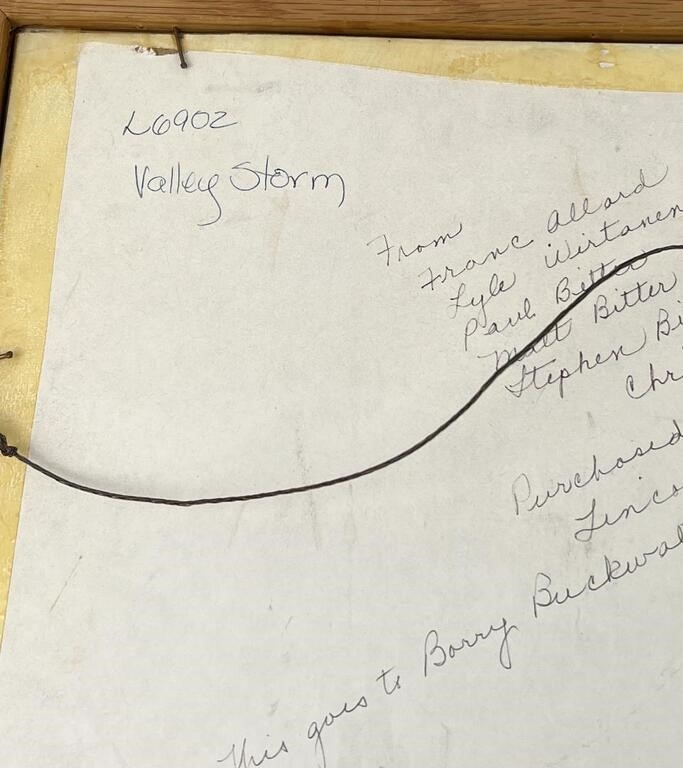 L6902
Valley Storm
From
Franc Allard
Lyle Wirtanen
Paul Bitter
Matt Bitter
Stephen Bi
Chr
Purchased
Linco
This goes to Barry Buckwal